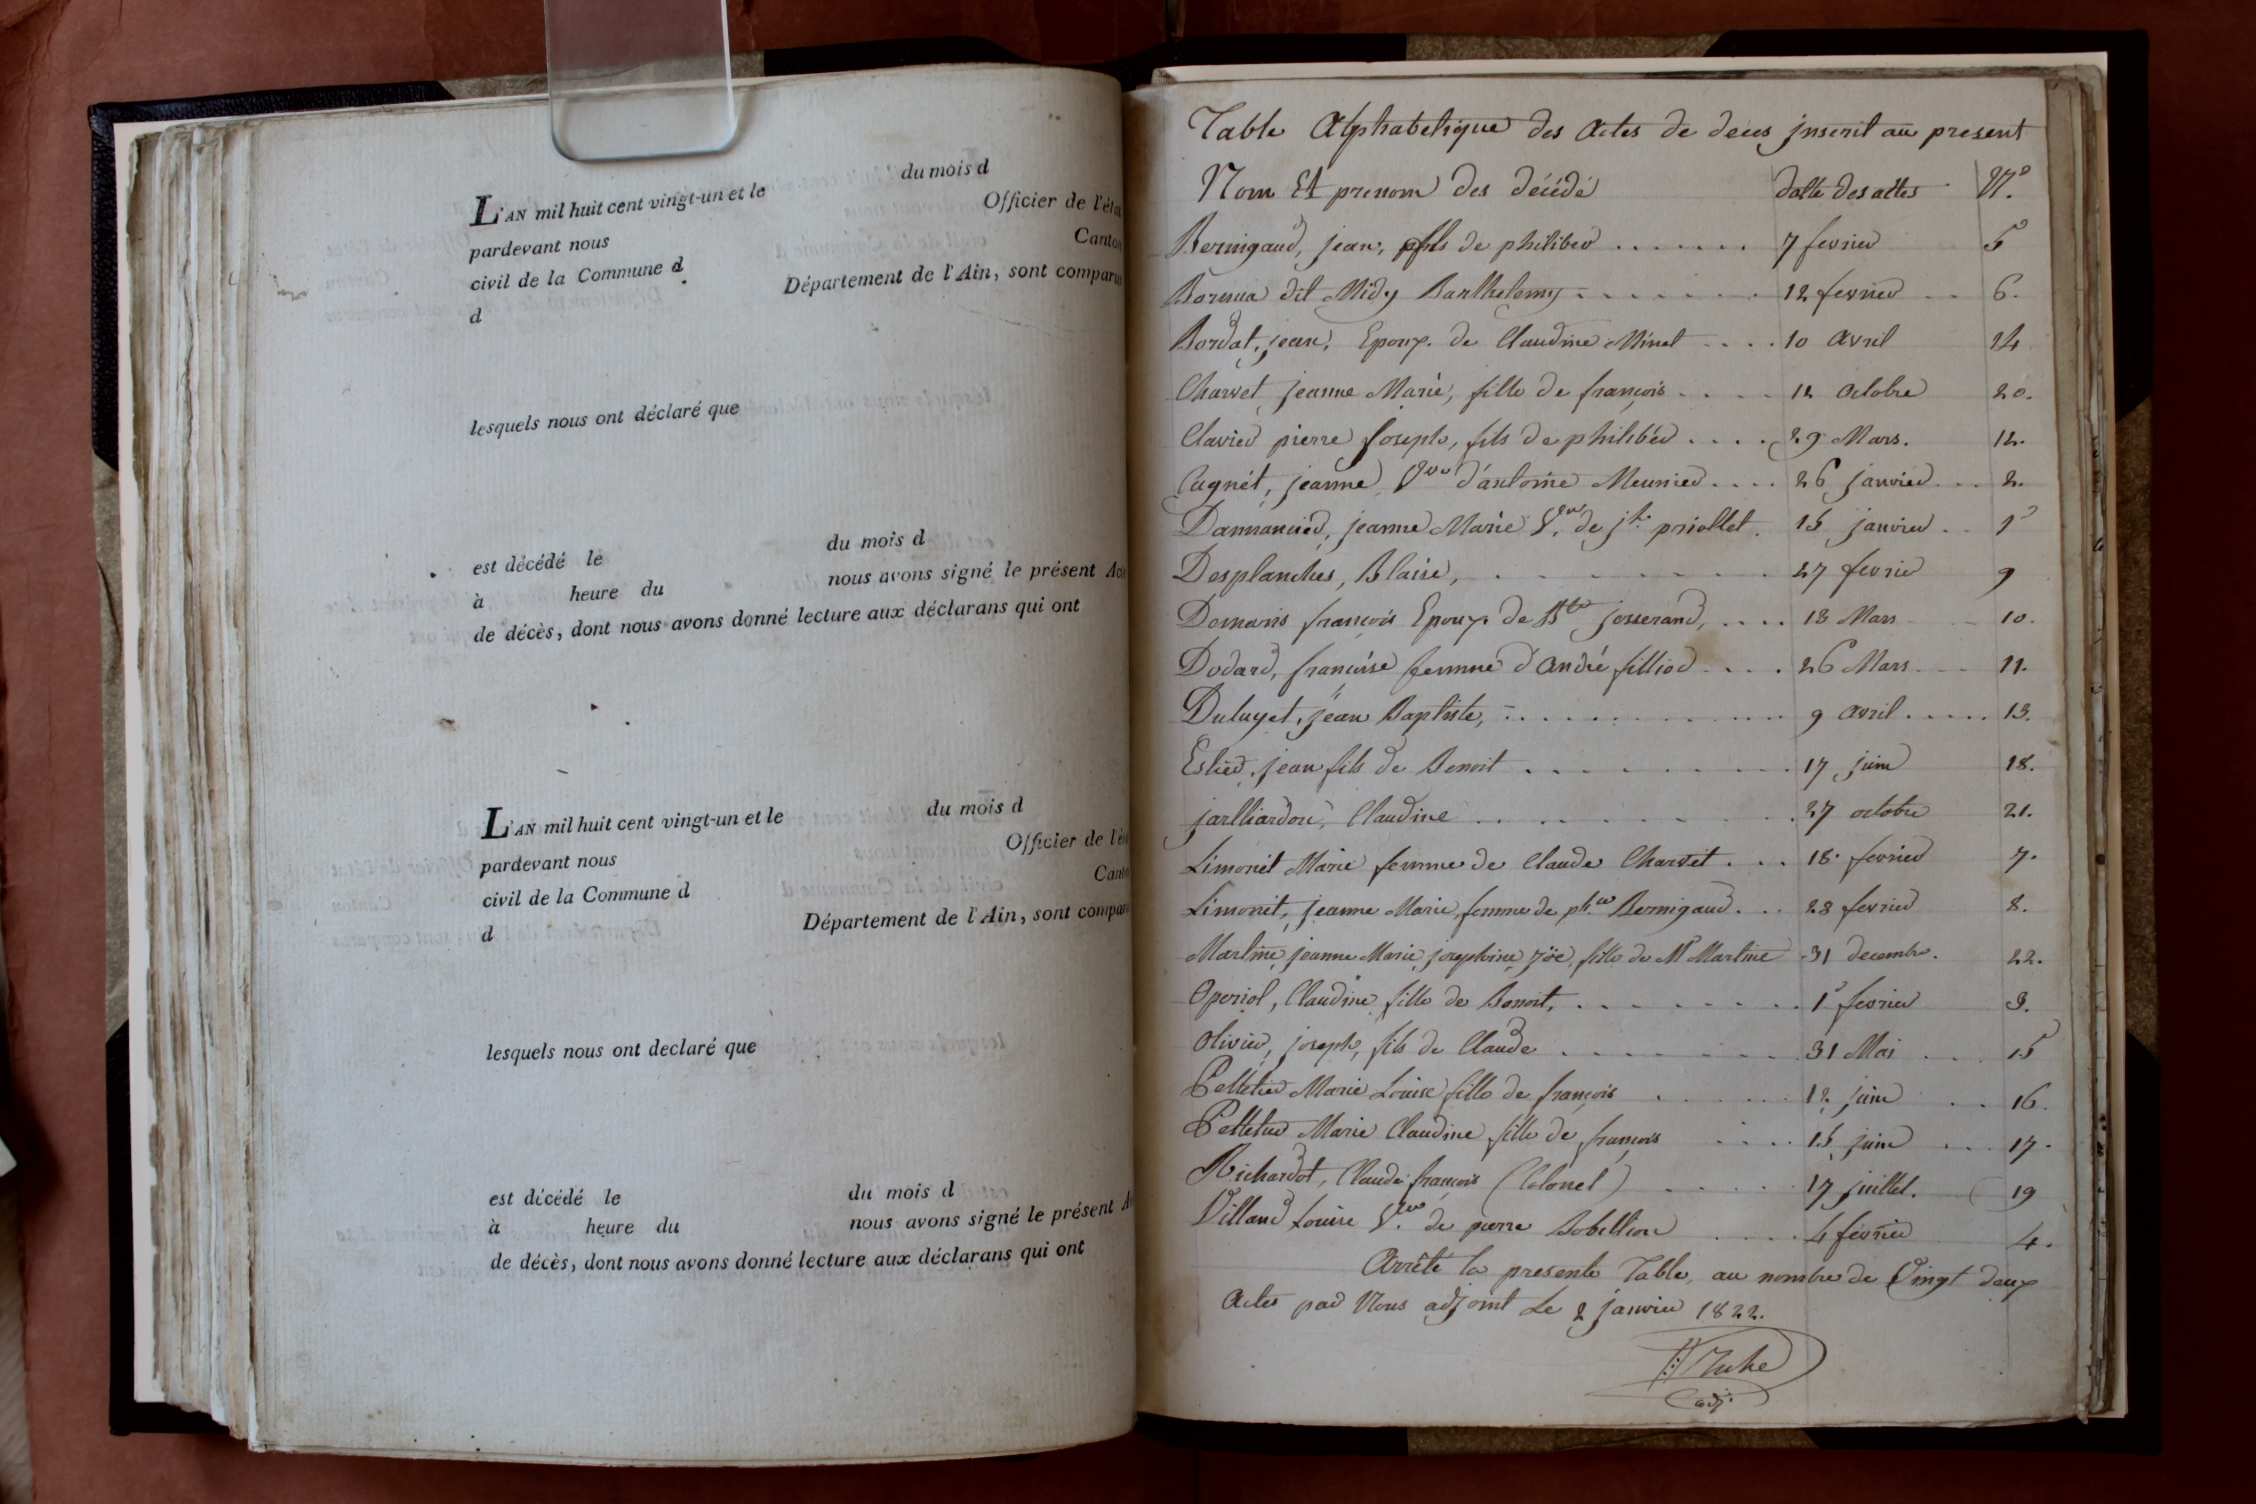 L'AN mil huit cent vingt-un et le du mois d
pardevant nous Officier de l'éta
civil de la Commune d Canton
d Département de l'Ain, sont comparus
lesquels nous ont déclaré que
est décédé le du mois d
à heure du nous avons signé le présent Ac
de décès, dont nous avons donné lecture aux déclarans qui ont
L'AN mil huit cent vingt-un et le du mois d
pardevant nous Officier de l'é
civil de la Commune d Canto
d Département de l'Ain, sont compar
lesquels nous ont declaré que
est décédé le du mois d
à heure du nous avons signé le présent A
de décès, dont nous avons donné lecture aux déclarans qui ont
Table Alphabetique des Actes de deces jnscrit au present
Nom Et prenom des décédé datte des actes Nº.
Bernigaud, jean, fils de philiber 7 fevrier 5
dit Midy Barthelemy 12 fevrier 6.
Bordat, jean, Epoux de Claudine Minet 10 Avril 14
Charvet, jeanne Marie, fille de françois 12 Octobre 20.
Clavier pierre Joseph, fils de philiber 29 Mars. 12.
Cugnét, jeanne Vve d'antoine Meunier 26 janvier 2.
jeanne Marie Vve de jh priollet. 15 janvier 1
Desplanches, Blaise, 27 fevrier 9
Demaris françois Epoux de Bte josserand, 13 Mars 10.
Dodard, françoise femme d'André filliod 26 Mars 11.
Duluyet, jean Baptiste, 9 avril 13.
Eslier, jean fils de Benoit 17 juin 18.
jailliardon, Claudine 27 octobre 21.
Limonet Marie femme de Claude Charvet 18 fevrier 7.
Limonet, jeanne Marie, femme de pher Bernigaud. 23 fevrier 8.
Martine, jeanne Marie josephine zöe, fille de Mr Martine 31 decembre. 22.
Operiol, Claudine fille de Benoit, 1r fevrier 3.
Olivier, joseph, fils de Claude 31 Mai 15
Pelletier Marie Louise fille de françois 12 juin 16.
Pelletier Marie Claudine fille de françois 15 juin 17.
Richardot, Claude françois (Colonel) 17 juillet. 19
Villand Louise Vve de pierre Bobillion 4 fevrier 4.
Arrêté la presente Table, au nombre de Vingt deux
Actes par Nous adjoint Le 2 janvier 1822.
adj.